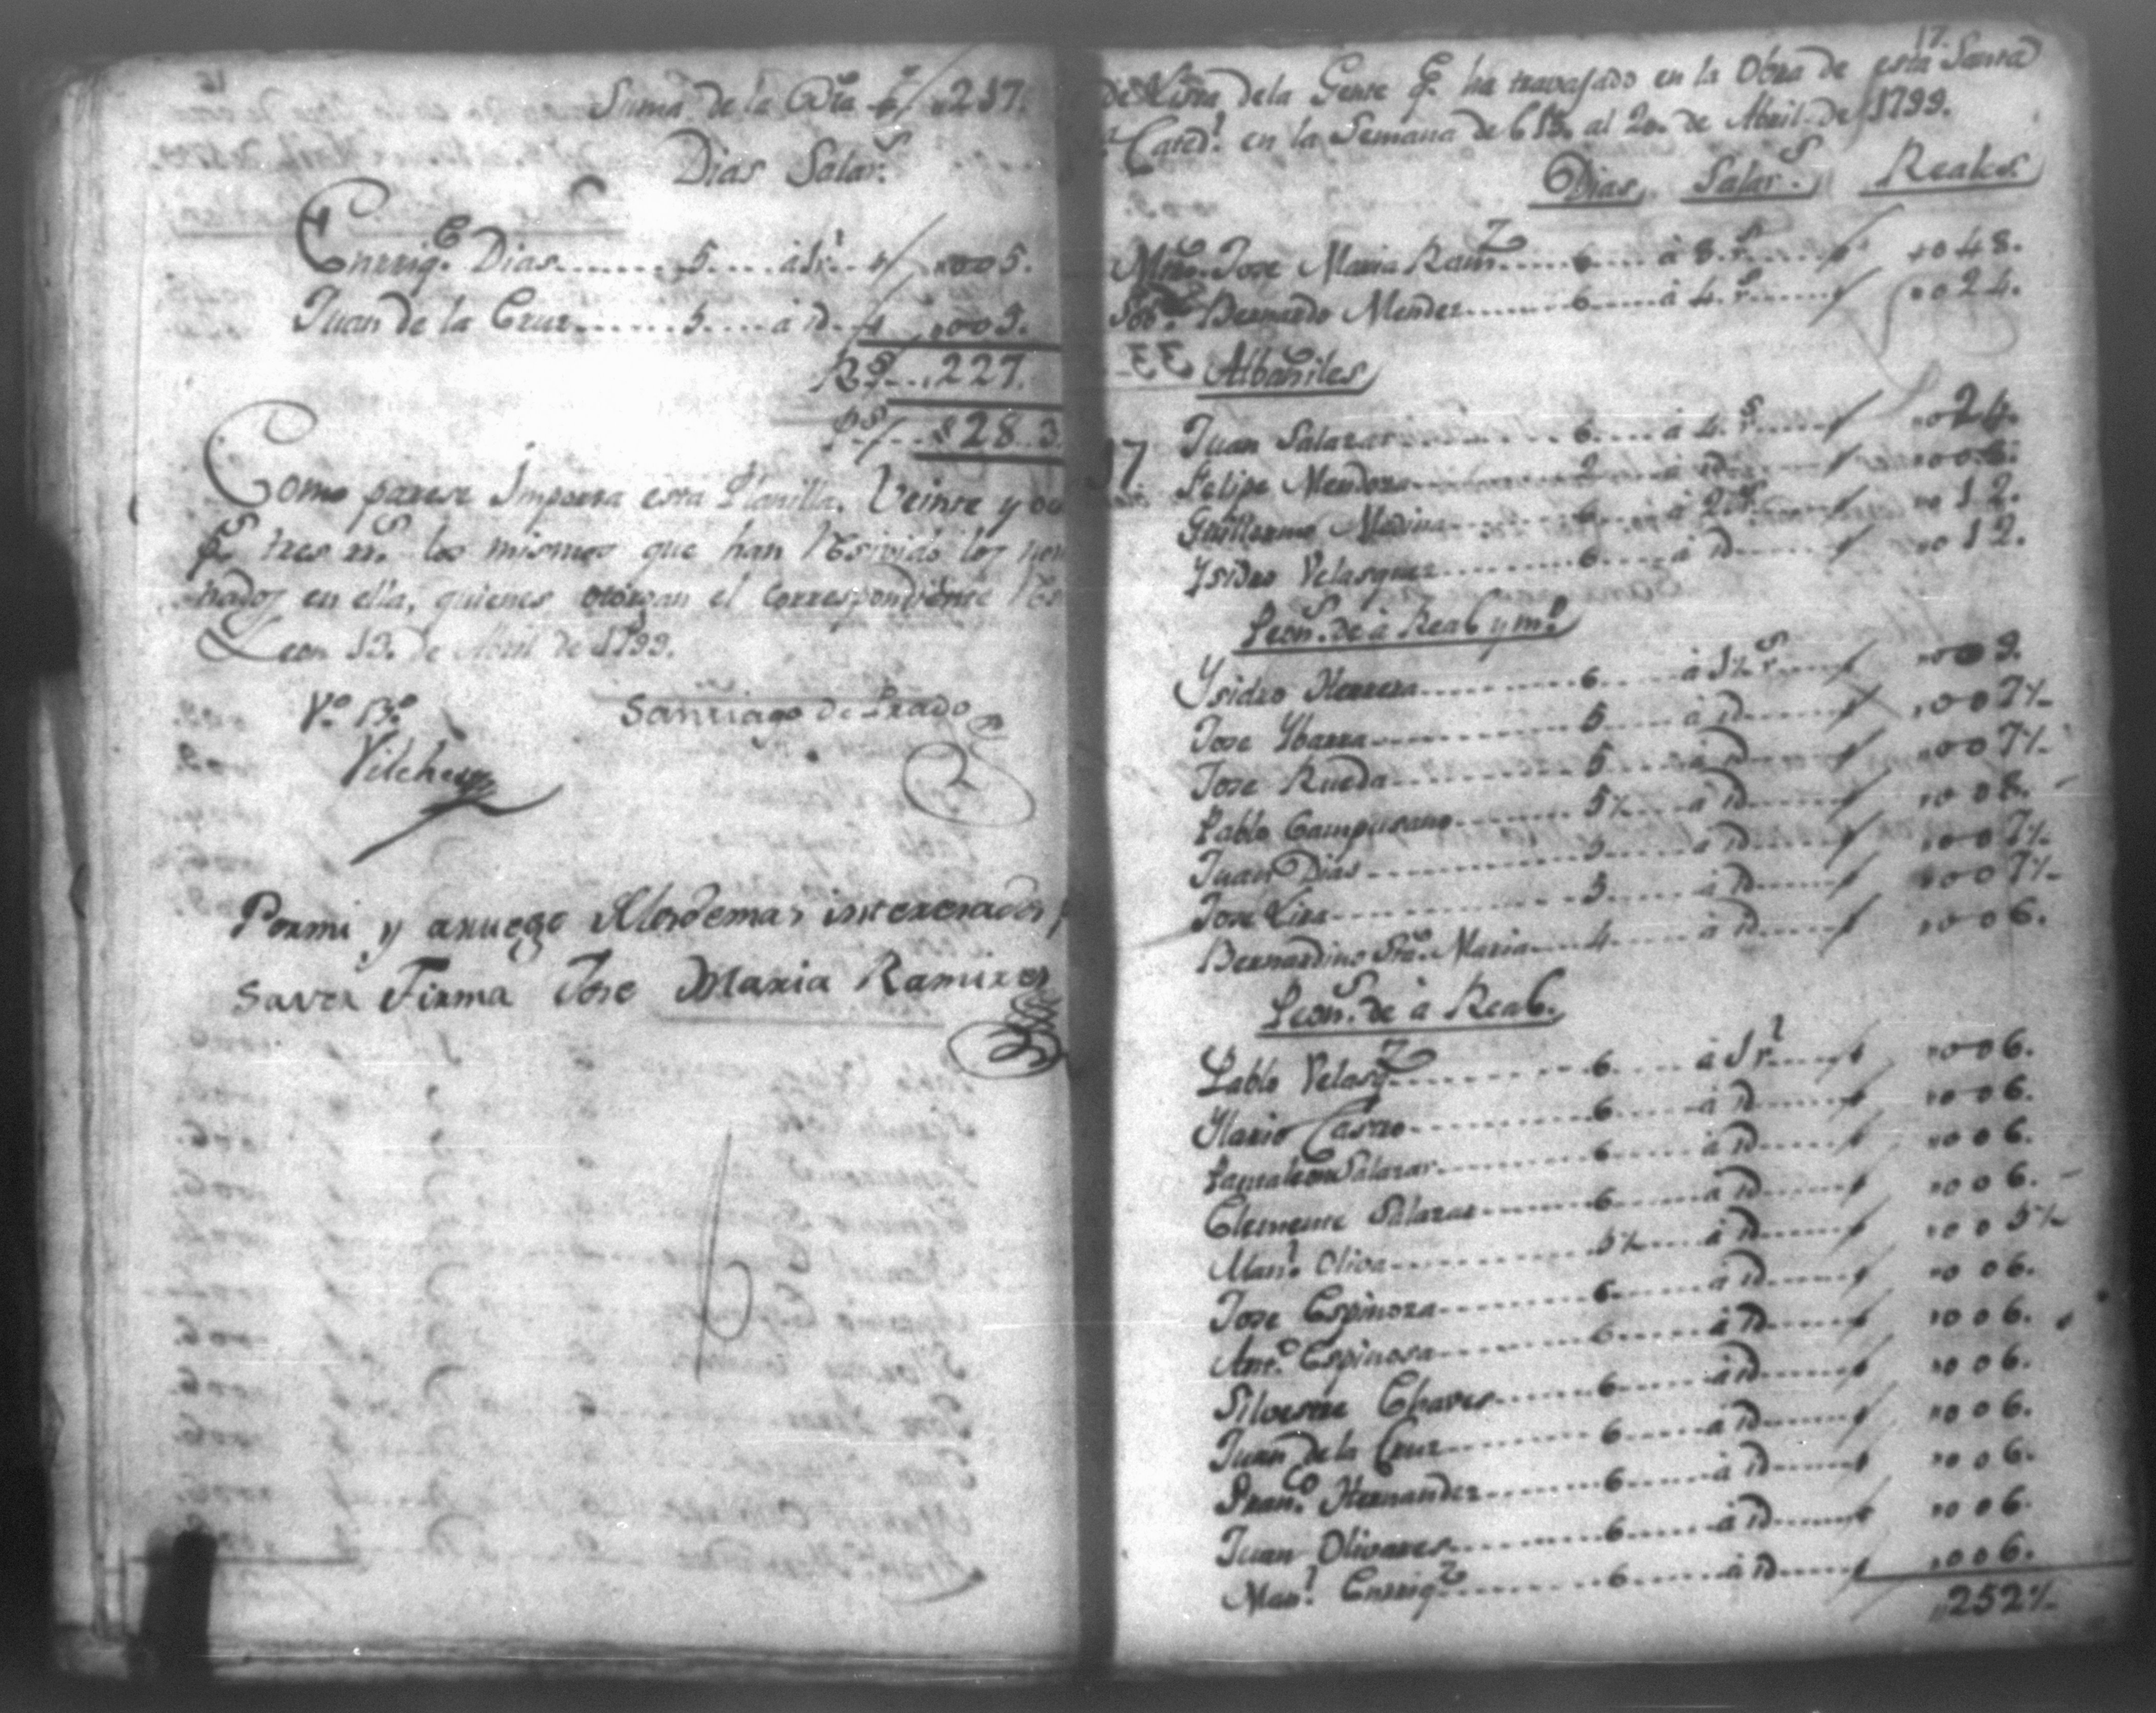 Suma de la Bta 217.
Dias Salar.s
Enrriq.e Dias 5 à 1 r.l 005.
Juan de la Cruz 5 à id 005.
R.s 227.
p.s 28 3
Como parese Importa esta Planilla, Veinte y oc
p.s tres rr.s los mismos que han Resivido los nom
nados en ella, quienes otorgan el Correspondiente Res
Leon 13. de Abril de 1799.
V.o B.o Santiago de Prado
Vilches
Pormi y arruego Alosdemas interesados p
Saver Firma Jose Maria Ramires
6
17.
de Lista dela Gente q.e ha travajado en la Obra de esta Santa
Cated.l en la Semana de 15. al 20. de Abril de 1799.
Dias Salar.s Reales.
Mro. Jose Maria Ram.z 6 à 8. r.s 048.
Sob.e Bernardo Mendez 6 à 4. r.s 024.
Albañiles
Juan Salazar 6 à 4. r.s 024.
Felipe Mendoza 2 à id 008.
Guillermo Medina 6 à 2 r.s 012.
Ysidro Velasquez 6 à id 012.
Peon.s de à Real y m.o
Ysidro Herrera 6 à 1½ r.s 009.
Jose Ybarra 5 à id 007½
Jose Rueda 5 à id 007½
Pablo Campusano 5½ à id 008.
Juan Dias 5 à id 007½
Jose Lira 5 à id 007½
Bernardino Sta. Maria 4 à id 006.
Peon.s de à Real.
Pablo Velasq.z 6 à 1 r.l 006.
Ylario Castro 6 à id 006.
Pantaleon Salazar 6 à id 006.
Clemente Salazar 6 à id 006.
Man.l Oliva 5½ à id 005½
Jose Espinoza 6 à id 006.
Ant.o Espinosa 6 à id 006.
Silvestre Chaves 6 à id 006.
Juan de la Cruz 6 à id 006.
Fran.co Hernandez 6 à id 006.
Juan Olivares 6 à id 006.
Man.l Enrriq.z 6 à id 006.
252½